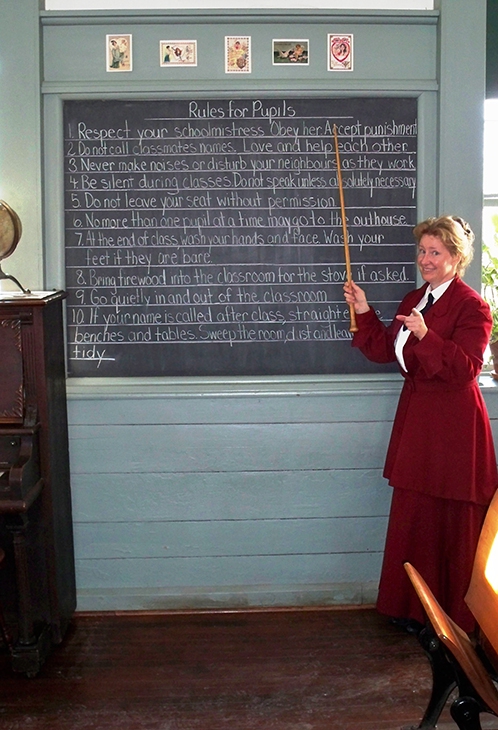 Rules for Pupils
1. Respect your schoolmistress. Obey her. Accept punishment
2. Do not call classmates names. Love and help each other
3. Never make noises or disturb your neighbours as they work
4. Be silent during classes. Do not speak unless absolutely necessary
5. Do not leave your seat without permission
6. No more than one pupil at a time may go to the outhouse
7. At the end of class, wash your hands and face. Wash your
feet if they are bare.
8. Bring firewood into the classroom for the stove if asked.
9. Go quietly in and out of the classroom
10. If your name is called after class, straighten the
benches and tables. Sweep the room, dust and leave
tidy